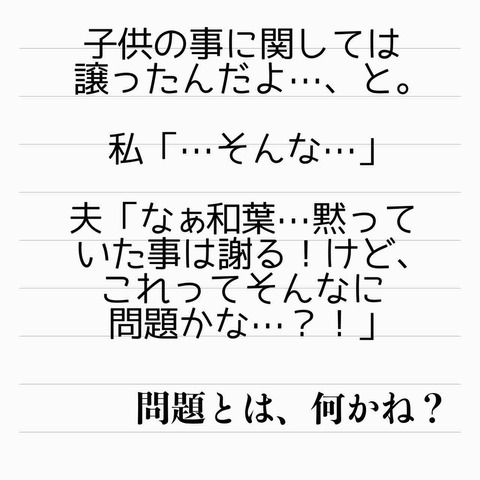 子供の事に関しては
譲ったんだよ…、と。
私「…そんな…」
夫「なぁ和葉…黙って
いた事は謝る！けど、
これってそんなに
問題かな…？！」
問題とは、何かね？